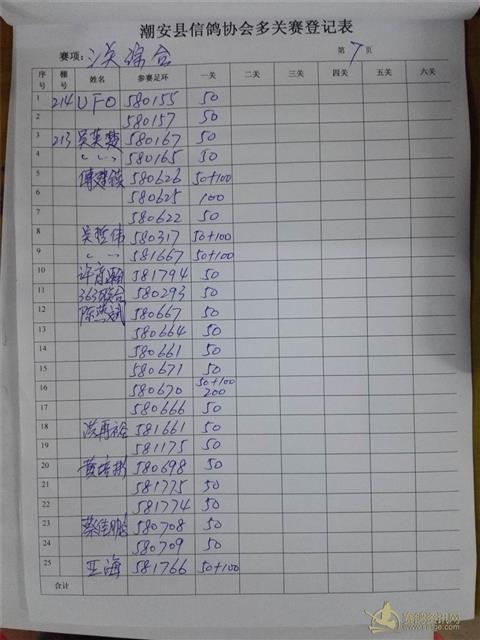 潮安县信鸽协会多关赛登记表
赛项: 三关综合 第 7 页
序号 棚号 姓名 参赛足环 一关 二关 三关 四关 五关 六关
1 214 UFO 580155 50
2 580157 50
3 213 吴英楚 580167 50
4 〃 580165 50
5 580626 50+100
6 580625 100
7 580622 50
8 吴哲伟 580317 50+100
9 〃 581667 50+100
10 581794 50
11 363联合 580293 50
12 陈燕斌 580667 50
13 580664 50
14 580661 50
15 580671 50
16 580670 50+100 200
17 580666 50
18 洪再裕 581661 50
19 581175 50
20 黄培彬 580698 50
21 581775 50
22 581774 50
23 蔡佳鹏 580708 50
24 580709 50
25 亚海 581766 50+100
合计